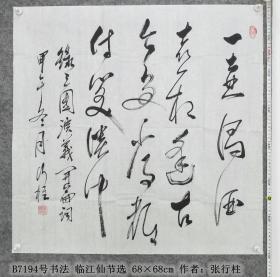 一壺濁酒
喜相逢古
今多少事都
付笑談中
錄三國演義開篇詞
甲午冬月行柱
B7194号书法 临江仙节选 68×68cm 作者：张行柱